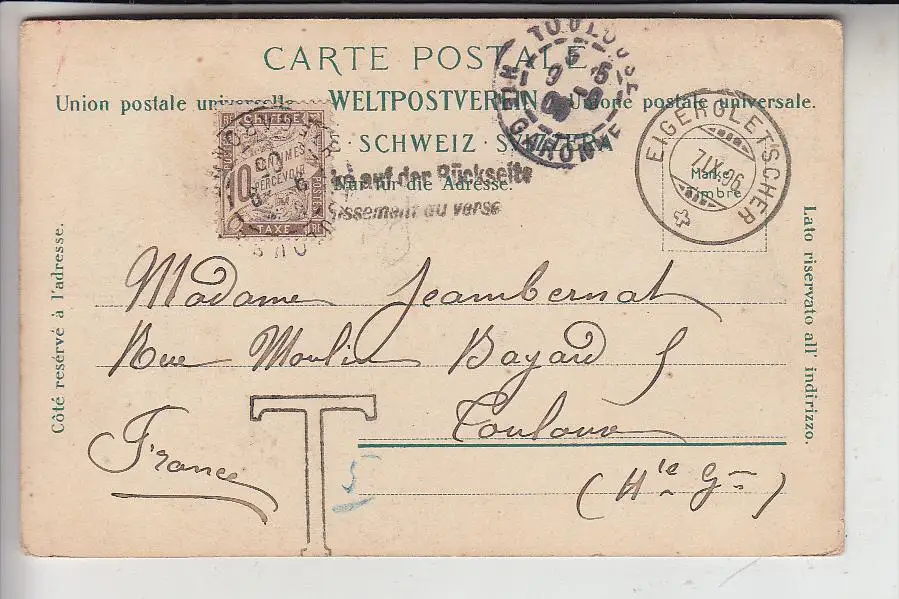 CARTE POSTALE
Union postale universelle. WELTPOSTVEREIN Unione postale universale.
SCHWEIZ SVIZZERA
Nur für die Adresse.
auf der Rückseite
au verso
TOULOUSE
Hte GARONNE
EIGERGLETSCHER
7.IX.06
Marke
Timbre
CHIFFRE
10
CENTIMES
A PERCEVOIR
POSTES
TAXE
Côté réservé à l'adresse.
Lato riservato all' indirizzo.
Madame Jeambernat
Rue Moulin Bayard 5
Toulouse
France
(Hte Gne)
T
5